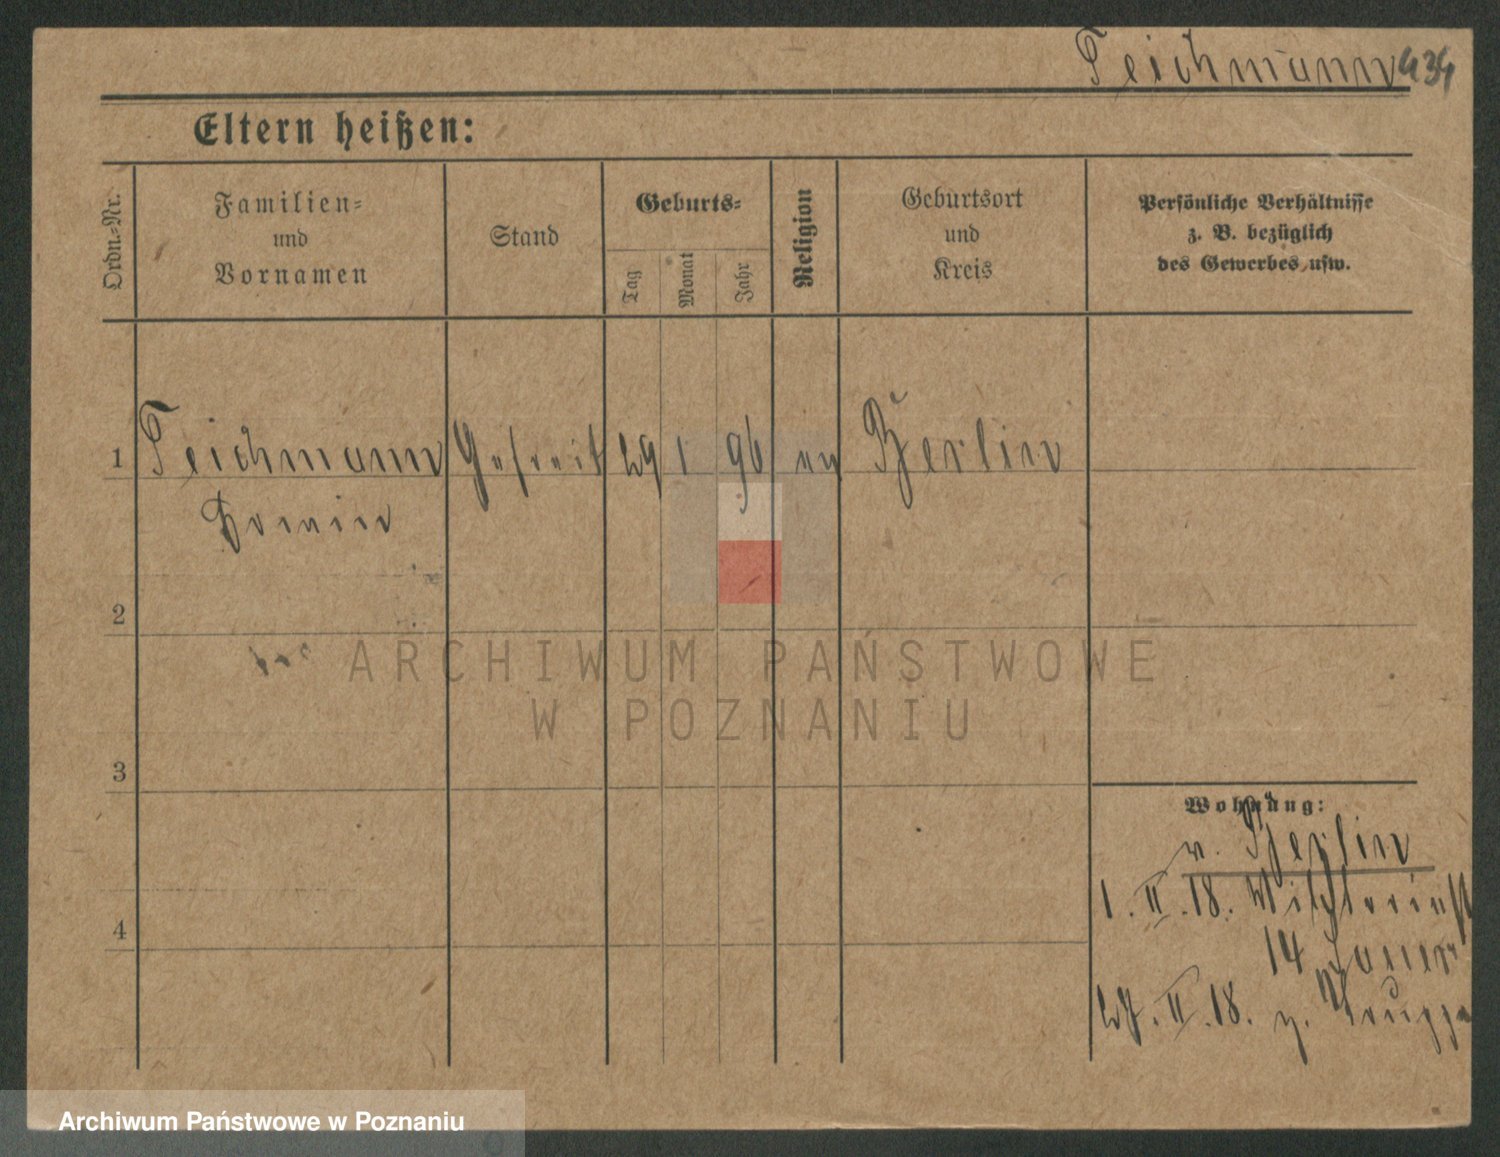 Teichmann 434
Eltern heißen:
Ordn.-Nr.
Familien-
und
Vornamen
Stand
Geburts-
Tag
Monat
Jahr
Religion
Geburtsort
und
Kreis
Persönliche Verhältnisse
z. B. bezüglich
des Gewerbes usw.
1 Teichmann Gefreit 29 1 96 ev Berlin
2
3
4
Wohnung:
v. Berlin
1. II. 18.
14 Jauer
27. II. 18. z. Truppe
ARCHIWUM PAŃSTWOWE
W POZNANIU
Archiwum Państwowe w Poznaniu